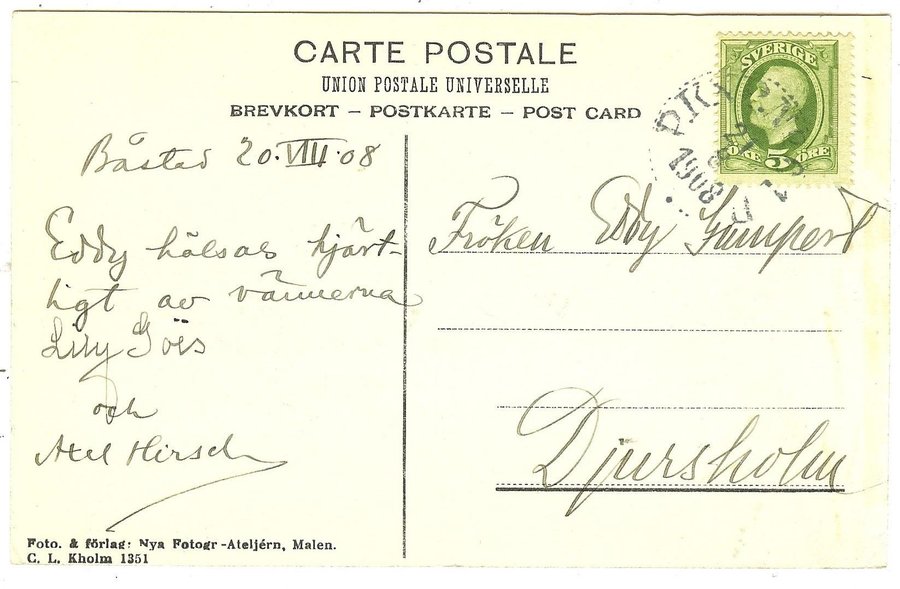 CARTE POSTALE
UNION POSTALE UNIVERSELLE
BREVKORT – POSTKARTE – POST CARD
SVERIGE
5
ÖRE ÖRE
1908
Båstad 20.VIII.08
Eddy hälsas hjärt-
ligt av vännerna
Lilly Göës
och
Axel Hirsch
Fröken Eddy Gumpert
Djursholm
Foto. & förlag: Nya Fotogr-Ateljérn, Malen.
C. L. Kholm 1351